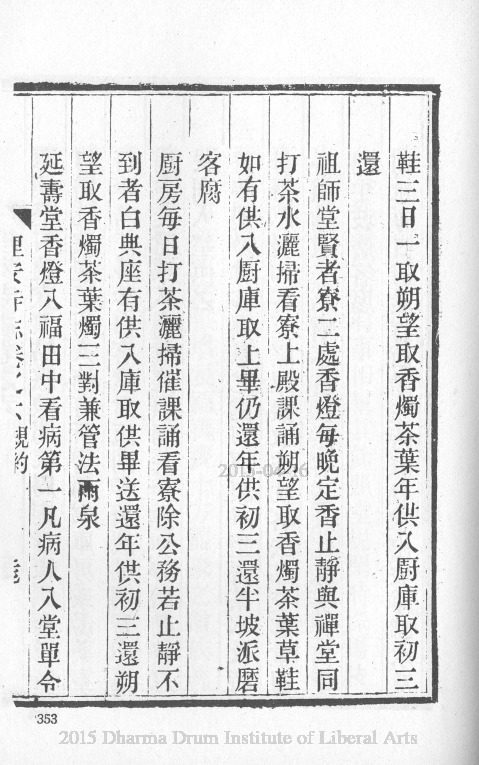 鞋三日一取朔望取香燭茶葉年供入厨庫取初三
還
祖師堂賢者寮二處香燈每晚定香止靜與禪堂同
打茶水灑掃看寮上殿課誦朔望取香燭茶葉草鞋
如有供入厨庫取上畢仍還年供初三還半坡派磨
客腐
厨房每日打茶灑掃催課誦看寮除公務若止靜不
到者白典座有供入庫取供畢送還年供初三還朔
望取香燭茶葉燭三對兼管法雨泉
延壽堂香燈八福田中看病第一凡病人入堂單令
理安寺志卷之六規約
353
2015 Dharma Drum Institute of Liberal Arts